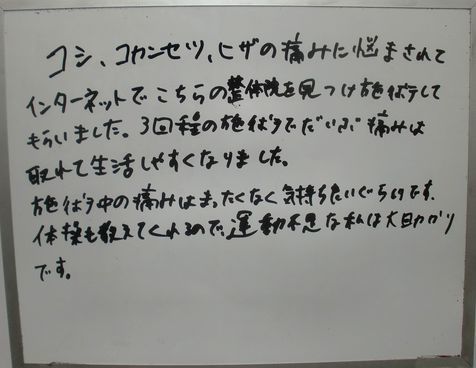 コシ、コカンセツ、ヒザの痛みに悩まされて
インターネットでこちらの整体院を見つけ施術して
もらいました。3回程の施術でだいぶ痛みは
取れて生活しやすくなりました。
施術中の痛みはまったくなく気持ちいいぐらいです。
体操も教えてくれるので、運動不足な私は大助かり
です。